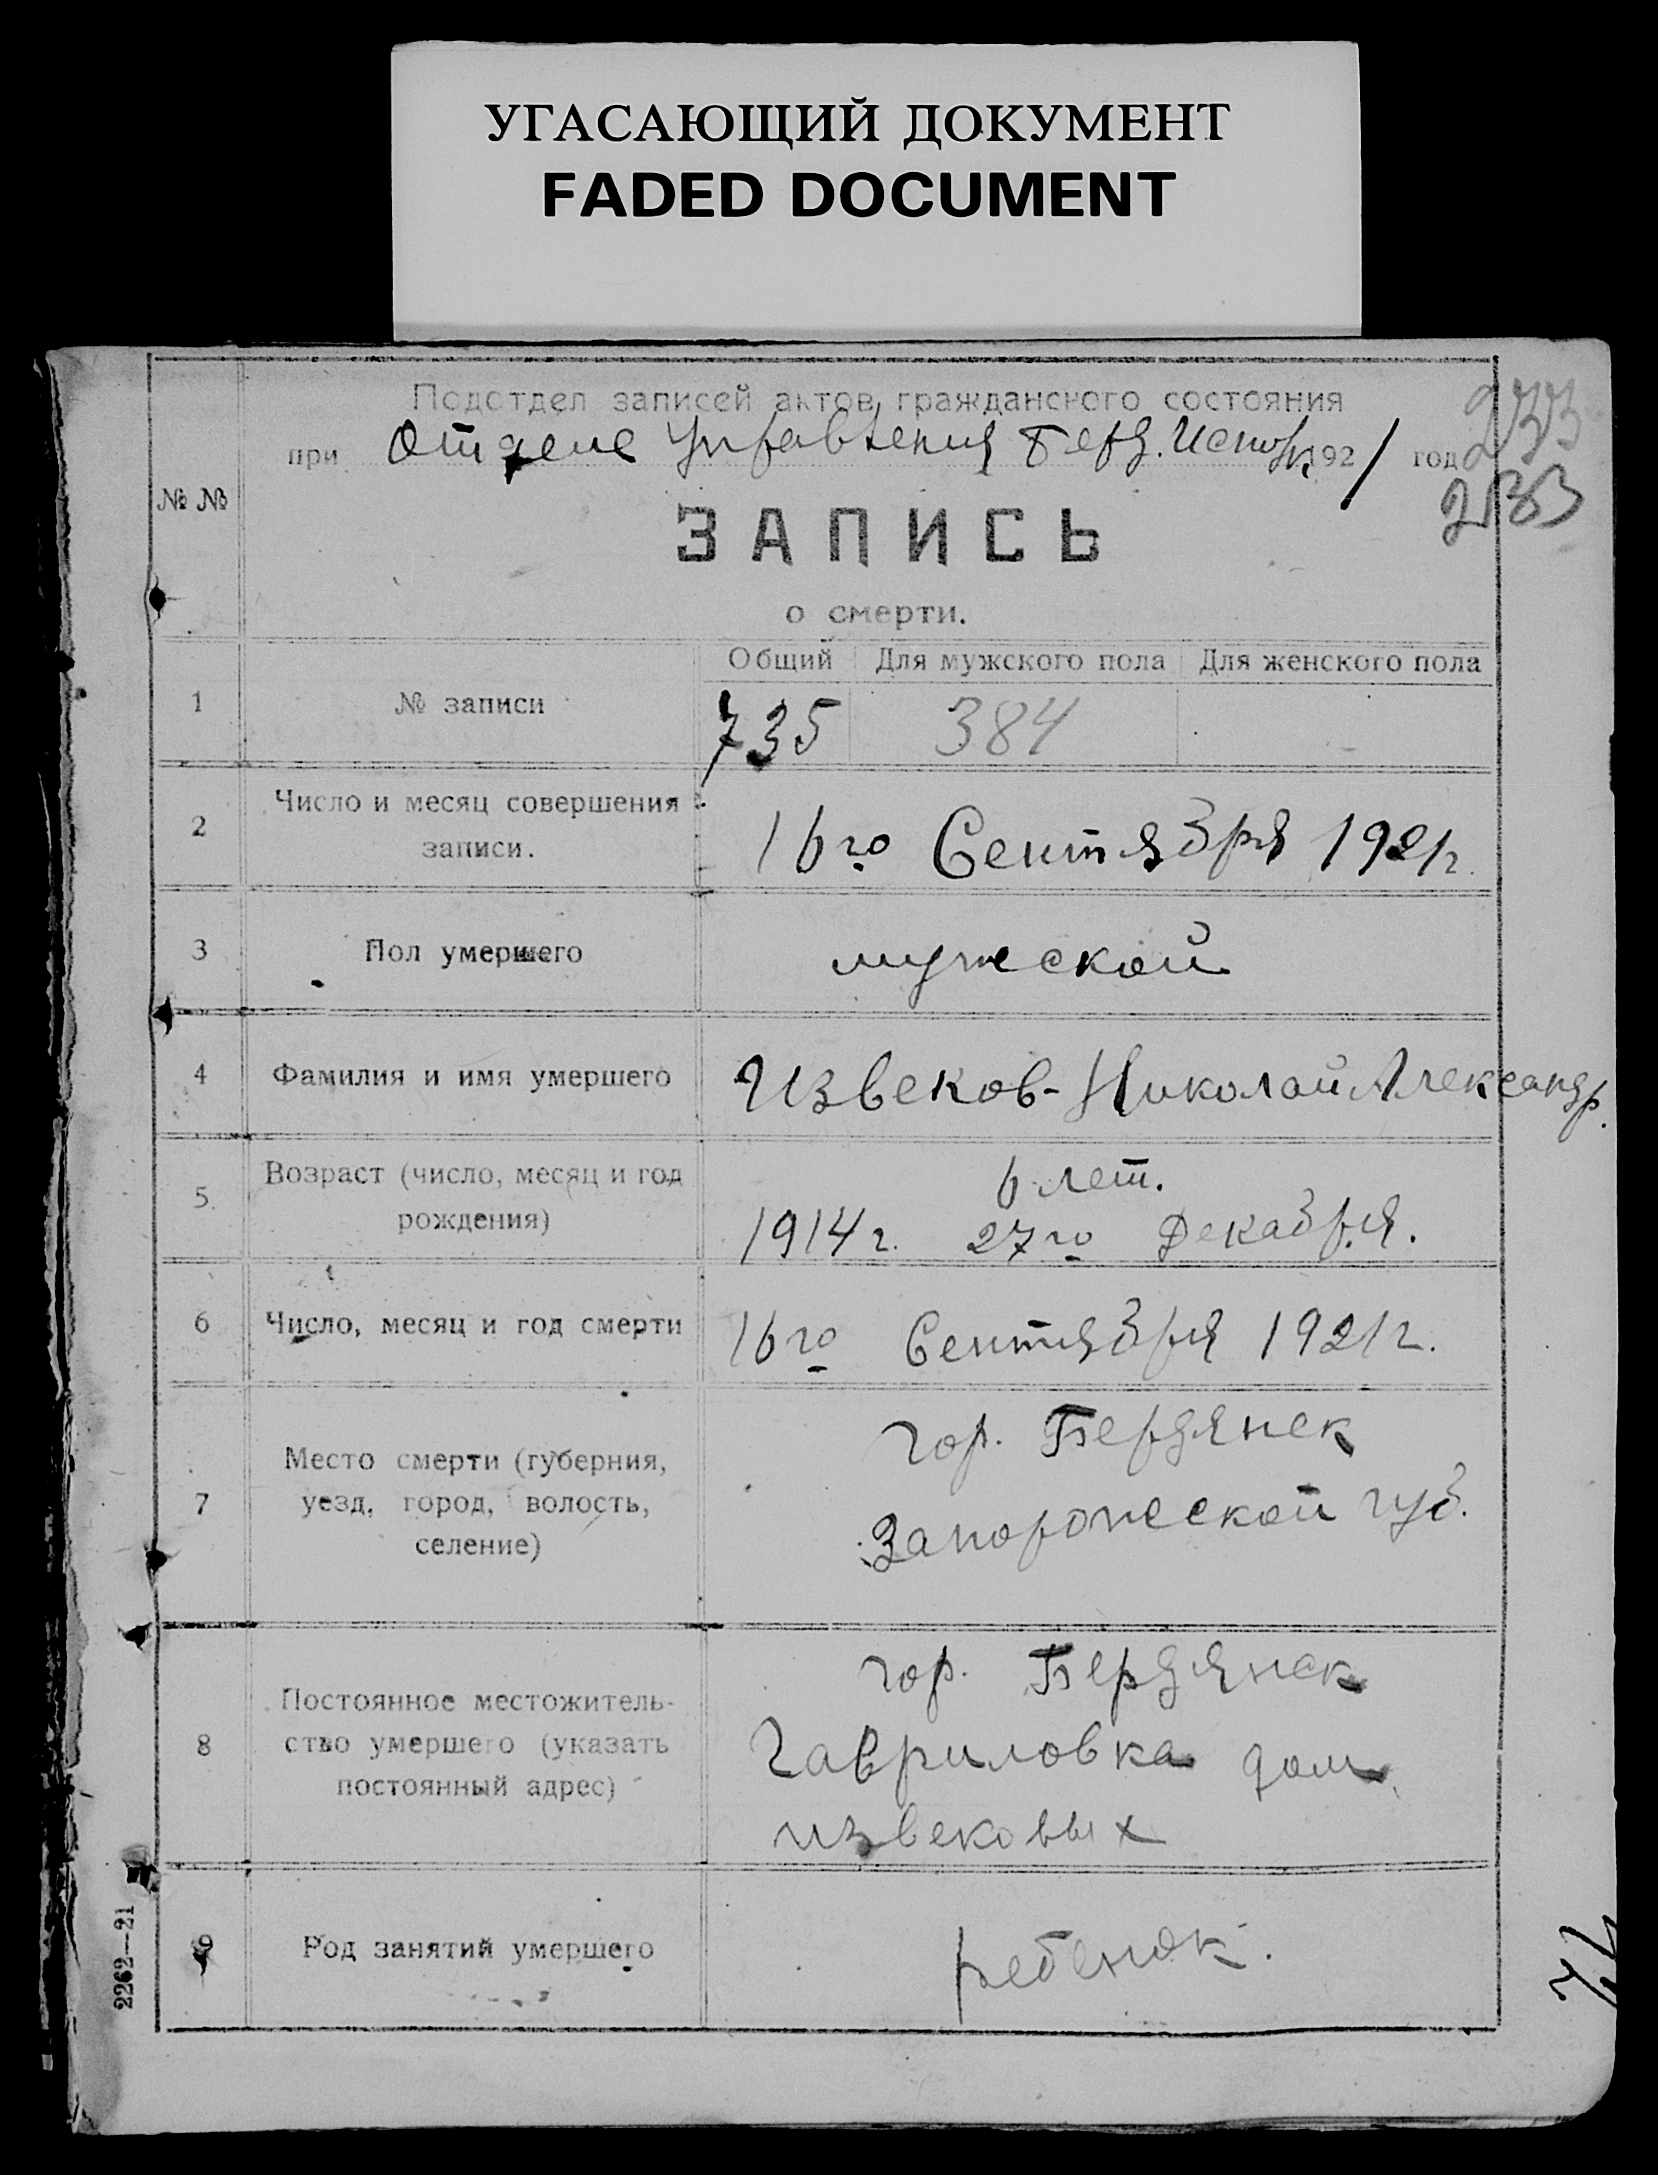 УГАСАЮЩИЙ ДОКУМЕНТ
FADED DOCUMENT
Подотдел записей актов гражданского состояния
при Отделе Управления Берд. 1921 год
233
233
№ №
ЗАПИСЬ
о смерти.
Общий Для мужского пола Для женского пола
1 № записи 735 384
2 Число и месяц совершения
записи.
16го Сентября 1921г.
3 Пол умершего мужской
4 Фамилия и имя умершего Извеков-Николай Александр.
5. Возраст (число, месяц и год
рождения)
6 лет.
1914г. 27го Декабря.
6 Число, месяц и год смерти 16го Сентября 1921г.
7 Место смерти (губерния,
уезд, город, волость,
селение)
гор. Бердянск
Запорожской губ.
8 Постоянное местожитель-
ство умершего (указать
постоянный адрес)
гор. Бердянск
Гавриловка дом
Извековых
9 Род занятий умершего ребенок.
2262—21